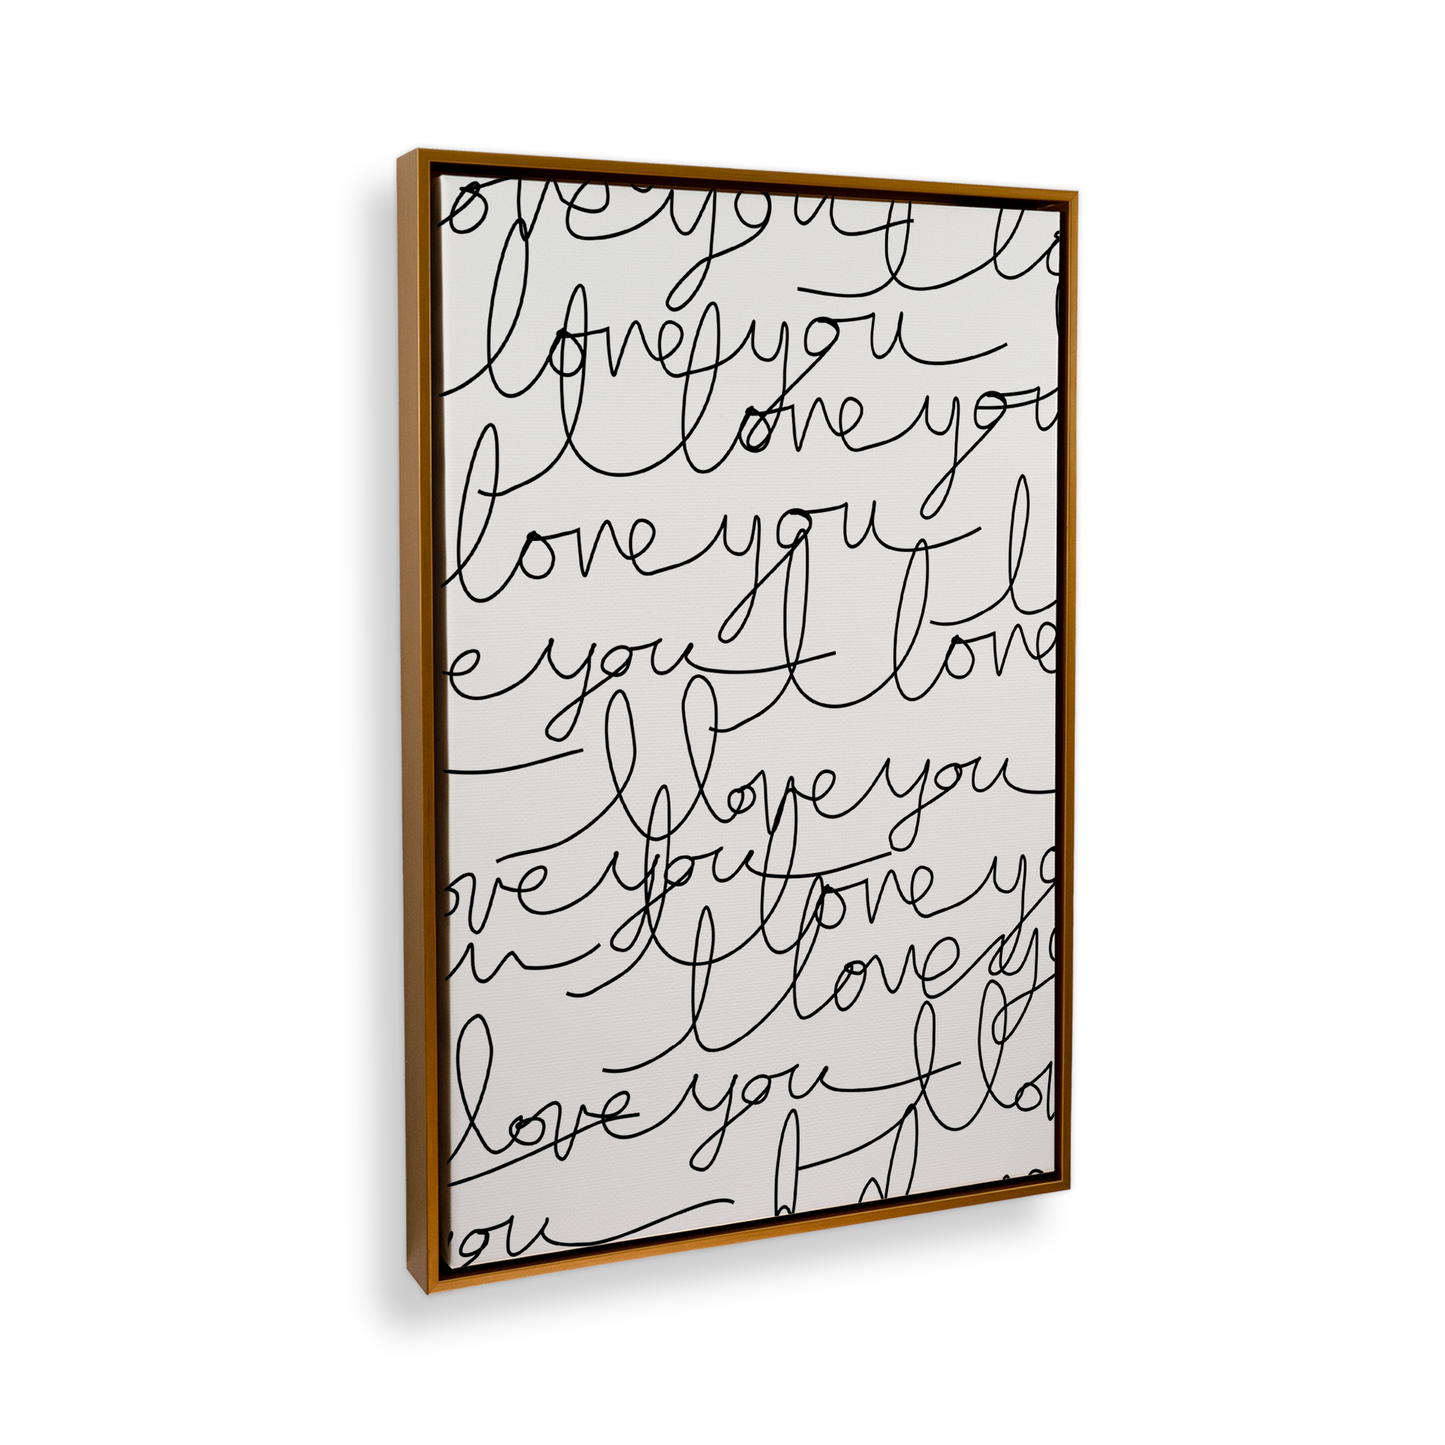 ove you I lo
love you
I love you
love you I
e you I love
I love you
ove you I love yo
u I love yo
love you I lo
you I l